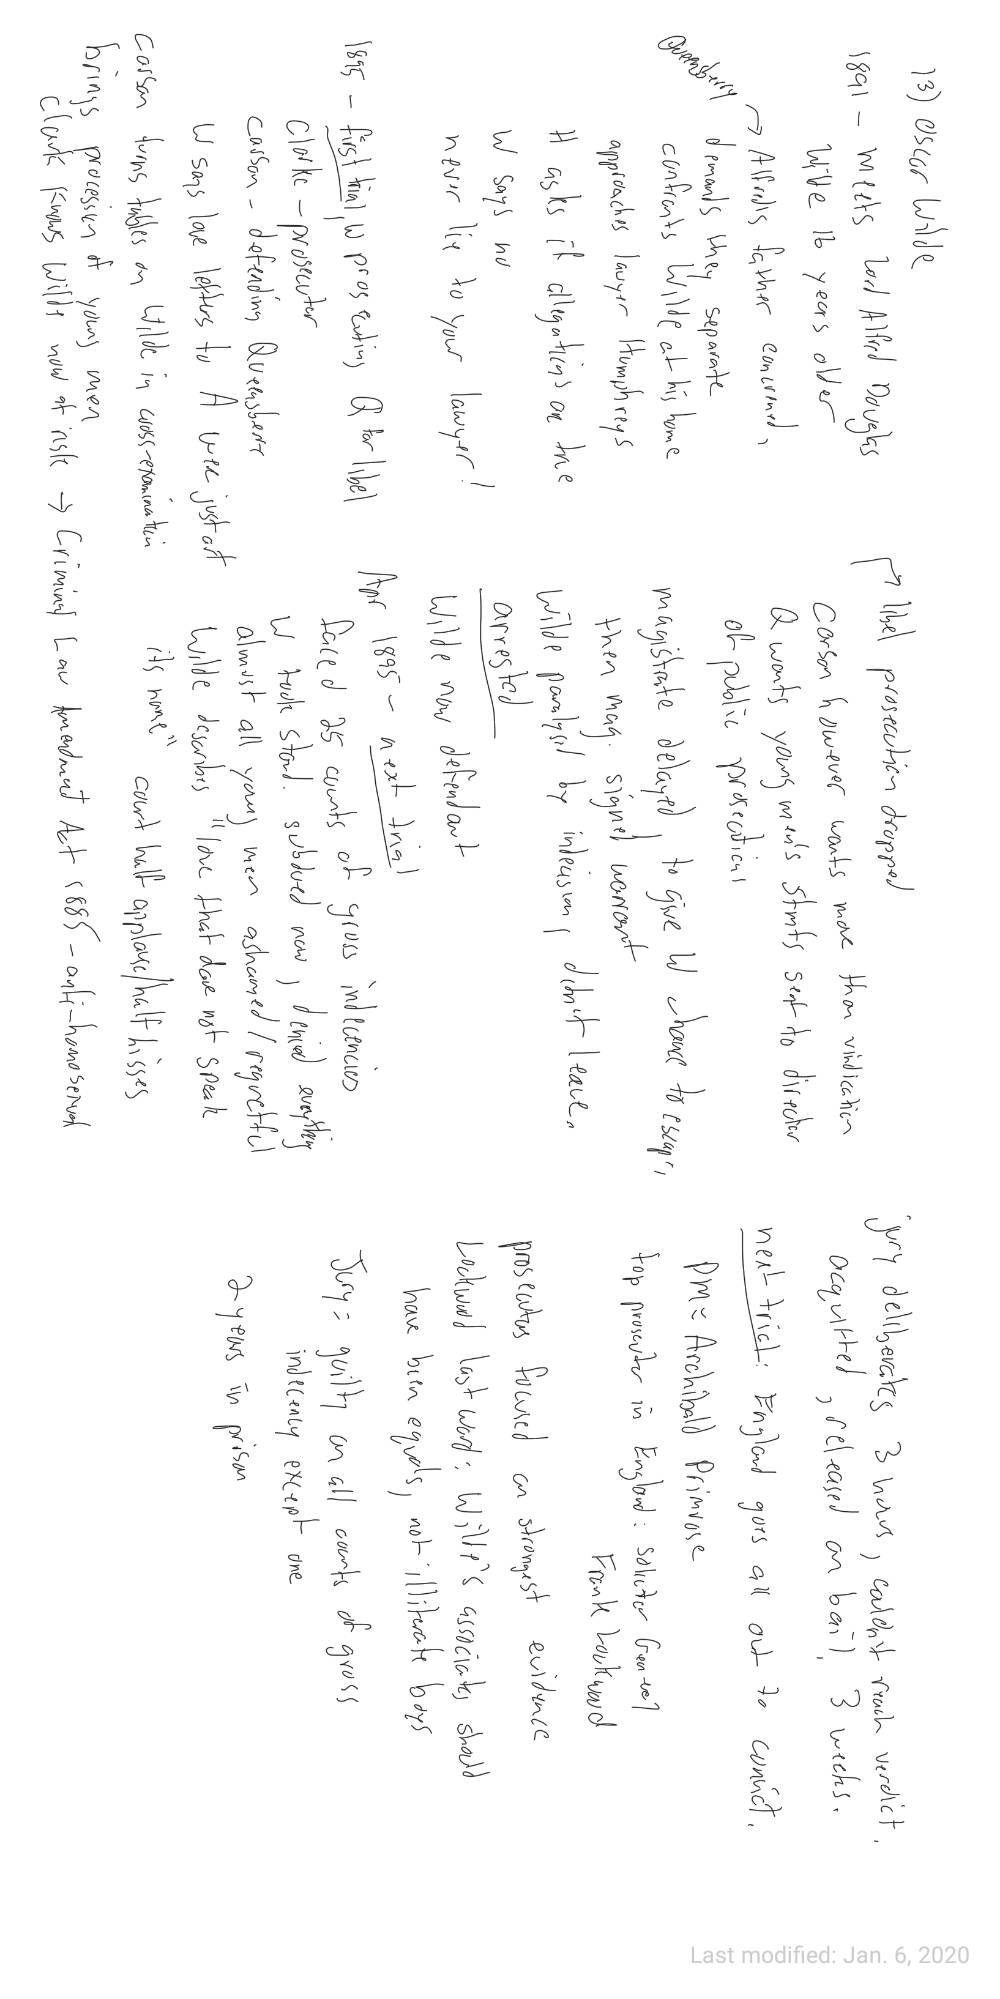 13) Oscar Wilde
1891 – meets Lord Alfred Douglas
Wilde 16 years older
→ Alfred's father concerned,
Queensberry
demands they separate
confronts Wilde at his home
approaches lawyer Humphreys
H asks if allegations are true
W says no
never lie to your lawyer!
1895 – first trial, W prosecuting Q for libel
Clarke – prosecutor
Carson – defending Queensberry
W says love letters to A were just art
Carson turns tables on Wilde in cross-examination
brings procession of young men
Clark knows Wilde now at risk → Criminal Law Amendment Act 1885 – anti-homosexual
→ libel prosecution dropped
Carson however wants more than vindication
Q wants young men's stmts sent to director
of public prosecutions
magistrate delayed, to give W chance to escape,
then mag. signed warrant
Wilde paralysed by indecision, didn't leave.
arrested
Wilde now defendant
Apr 1895 – next trial
faced 25 counts of gross indecencies
W took stand. subdued now, denied everything
almost all young men ashamed/regretful
Wilde describes "love that dare not speak
its name"
court half applause/half hisses
jury deliberates 3 hours, couldn't reach verdict.
acquitted, released on bail, 3 weeks.
next trial: England goes all out to convict.
PM = Archibald Primrose
top prosecutor in England: Solicitor General
Frank Lockwood
prosecutors focused on strongest evidence
Lockwood last word: Wilde's associates should
have been equals, not illiterate boys
Jury = guilty on all counts of gross
indecency except one
2 years in prison
Last modified: Jan. 6, 2020